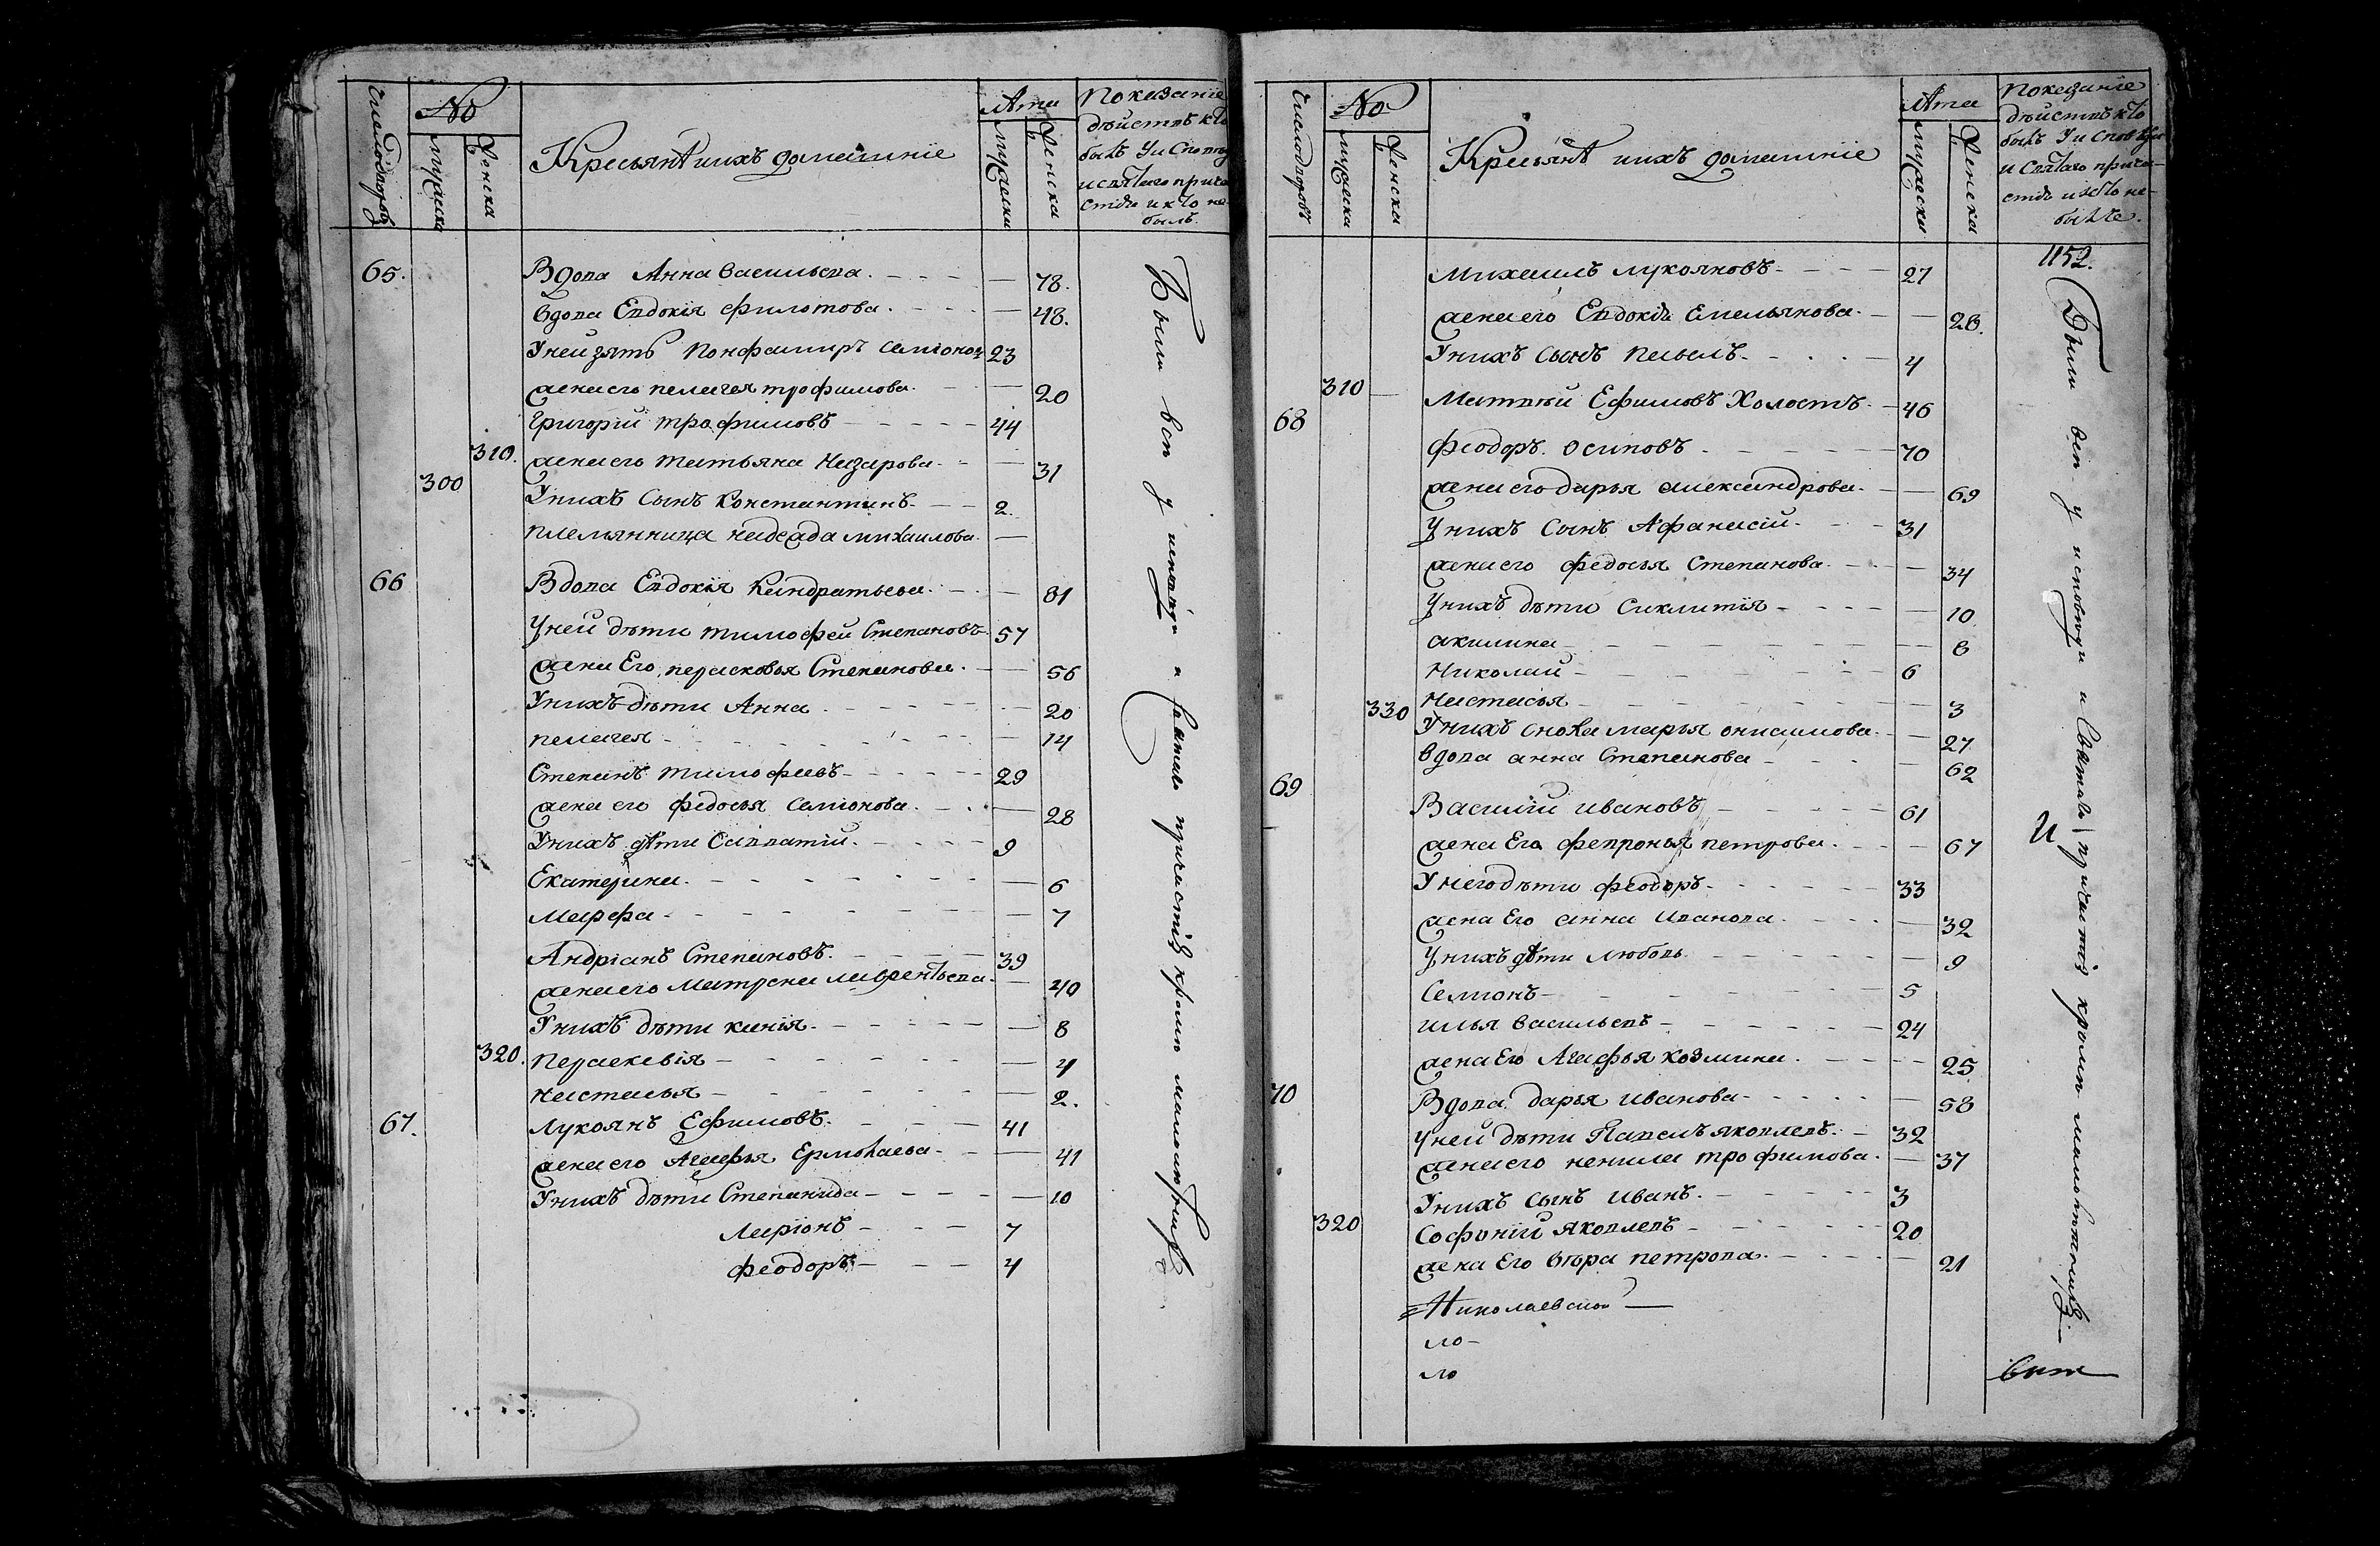 Число дворовъ
№
мужска
женска
Крестьянѣ ихъ домашніе
Лѣта
мужски
женска
Показаніе
дѣйствъ кто
былъ У и Сповѣд
и святаго прича
стія и кто не
былъ.
65. Вдова Анна Васильева. 78.
Вдова Евдокія Филотова. 48.
У ней зять Понфамиръ Семіонов 23
жена его пелагея трофимова. 20
Григорій трофимовъ 44
310. жена его татьяна Назарова. 31
300 У нихъ Сынъ Константинъ. 2.
племянница надежда михаилова.
66 Вдова Евдокія Кандратьева. 81
У ней дѣти тимофей Степановъ 57
жена Его, парасковья Степанова. 56
У нихъ дѣти Анна 20
пелагея 14
Степанъ тимофеевъ 29
жена его федосья Семіонова. 28
У нихъ дѣти Савватій. 9
Екатерина. 6
Марфа 7
Андріанъ Степановъ. 39
жена его Матрена лаврентьева. 40
У нихъ дѣти ксенія. 8
320. Параскевія 4
Настасья 2.
67. Лукоянъ Ефимовъ. 41
жена его Агафья Ермолаева 41
У нихъ дѣти Степанида 10
Ларіонъ 7
Феодоръ 4
Были всѣ у исповѣди и Святаго причастія кромѣ малолѣтнихъ
Число дворовъ
№
мужска
женска
Крестьянѣ ихъ домашніе
Лѣта
мужески
женска
Показаніе
дѣйствъ кто
былъ У и Сповѣди
и Святаго прича-
стія и кто не-
былъ.
1152.
Михаилъ лукояновъ 27
жена его Евдокія Емельянова. 28.
У нихъ Сынъ павелъ. 4
310 Матвѣй Ефимовъ Холостъ. 46
68 Феодоръ Осиповъ 70
жена его дарья александрова. 69
У нихъ Сынъ Афанасій. 31
жена его федосья Степанова. 34
У нихъ дѣти Сиклитія 10
акилина 8
Николай 6
330 Настасья 3
У нихъ сноха марья онисимова. 27
вдова анна Степанова 62
69 Василій ивановъ 61
жена Его февронья петрова. 67
У него дѣти феодоръ. 33
жена Его анна Иванова. 32
У нихъ дѣти любовь 9
Семіонъ 5
илья васильевъ 24
жена Его Агафья козмина. 25
70 Вдова дарья иванова 58
У ней дѣти Павелъ яковлевъ. 32
жена его ненила трофимова. 37
У нихъ Сынъ иванъ. 3
320 Софоній яковлевъ 20
жена Его вѣра петрова. 21
Николаевской
ло-
ло
Были всѣ у исповѣди и Святаго причастія кромѣ малолѣтнихъ.
И